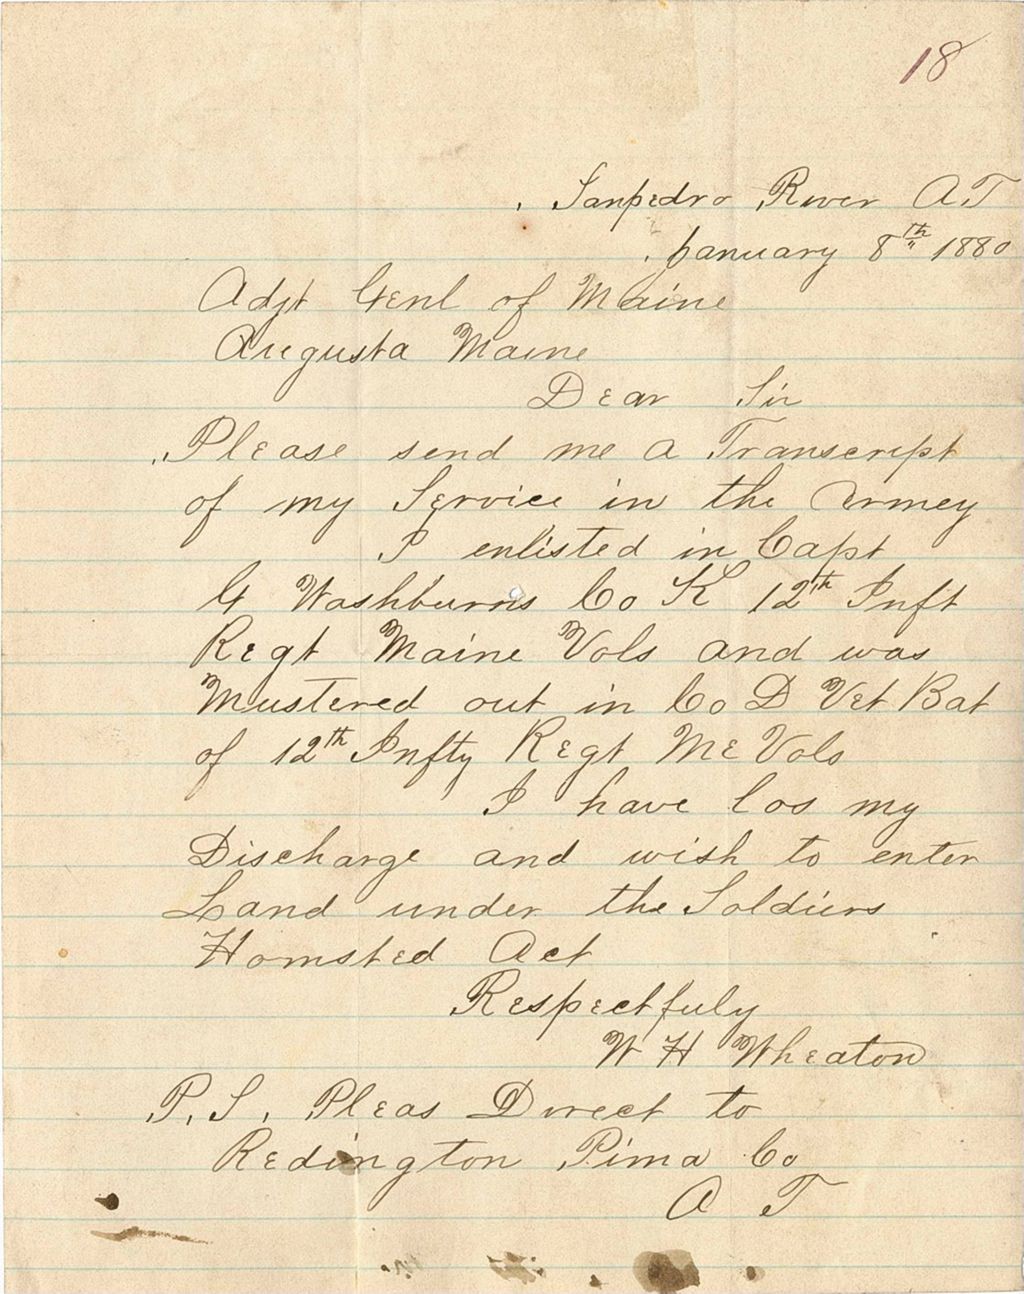 18
Sanpedro River A T
January 8th 1880
Adjt Genl of Maine
Augusta Maine
Dear Sir
Please send me a Transcript
of my Service in the Armey
I enlisted in Capt
G Washburns Co K 12th Inft
Regt Maine Vols and was
Mustered out in Co D Vet Bat
of 12th Infty Regt Me Vols
I have los my
Discharge and wish to enter
Land under the Soldiers
Homsted Act
Respectfuly
W H Wheaton
P.S. Pleas Direct to
Redington Pima Co
A T